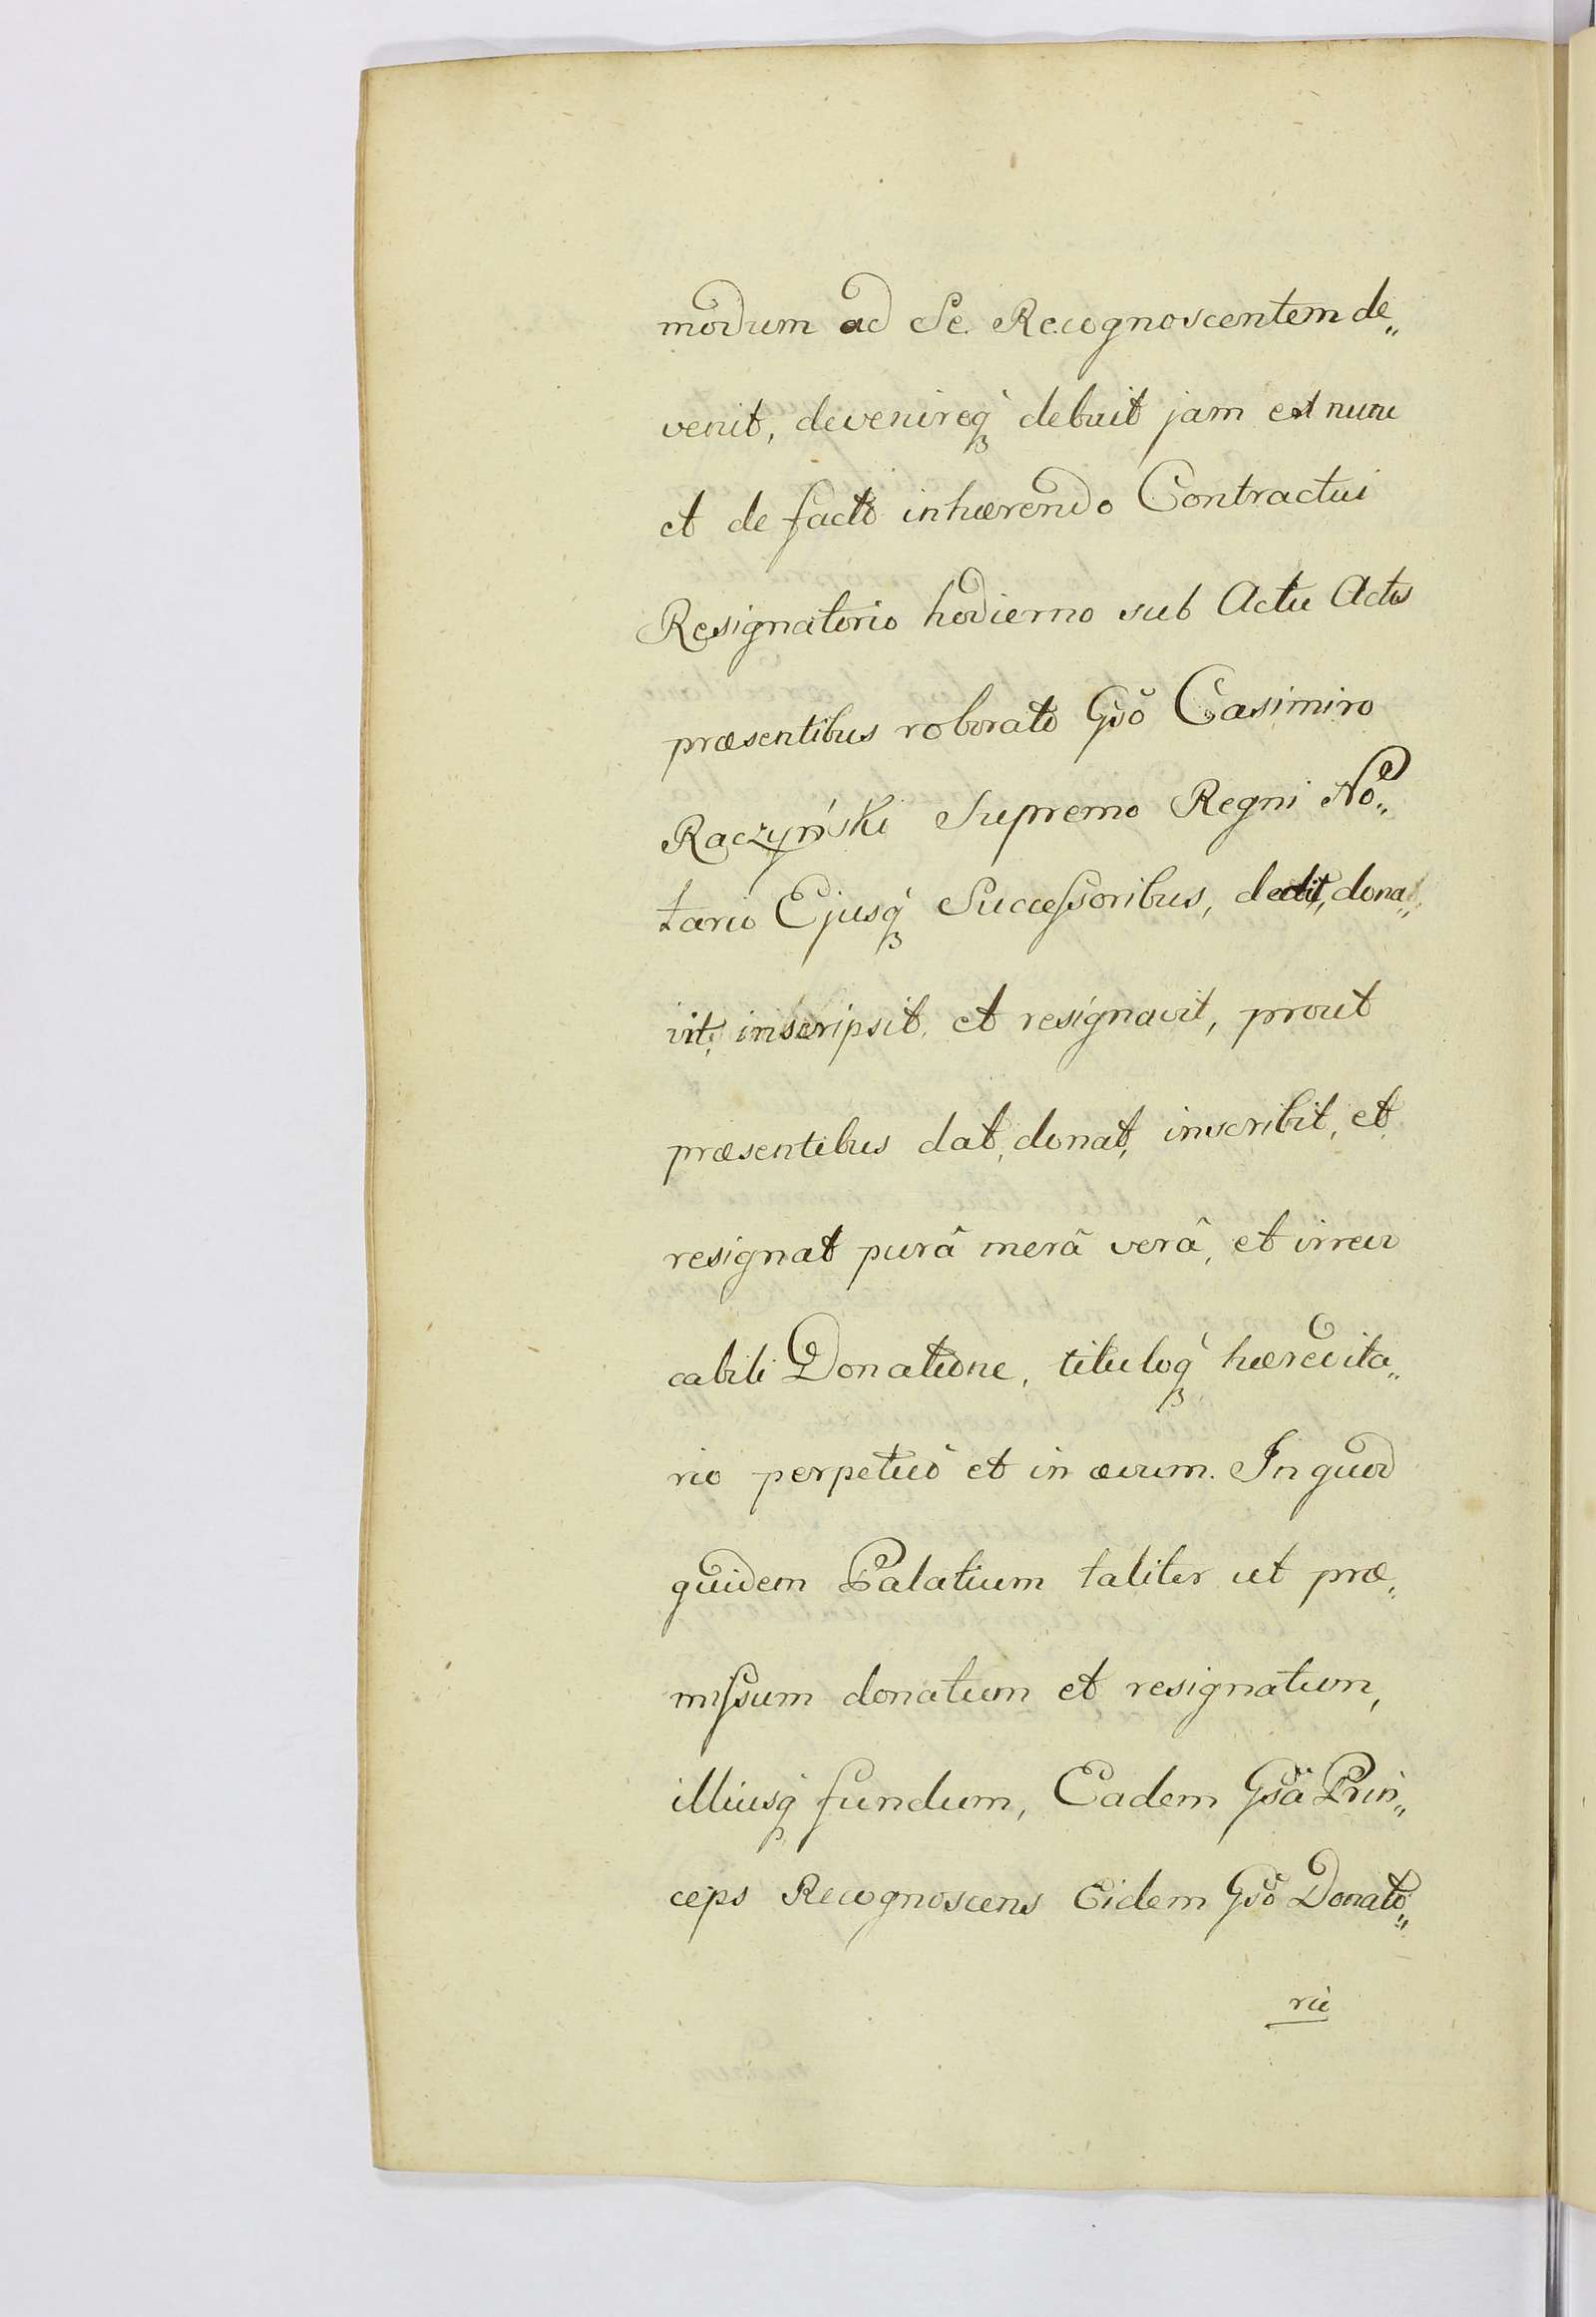 modum ad Se Recognoscentem de„
venit, devenireq́ꝫ debuit jam ex nunc
et de facto inhærendo Contractui
Resignatorio hodierno sub Actu Actis
præsentibus roborato Gsõ Casimiro
Raczyński Supremo Regni No„
tario Ejusq́ꝫ Succeſsoribus, dedit, dona„
vit, inscripsit, et resignavit, prout
præsentibus dat, donat, inscribit, et
resignat purâ merâ verâ, et irrevo
cabili Donatione, tituloq́ꝫ hæredita„
rio perpetuò et in ævum. In quod
quidem Palatium taliter ut præ„
miſsum donatum et resignatum,
illiusq́ꝫ fundum, Eadem Gsã Prin„
ceps Recognoscens Eidem Gsõ Donato„
rio